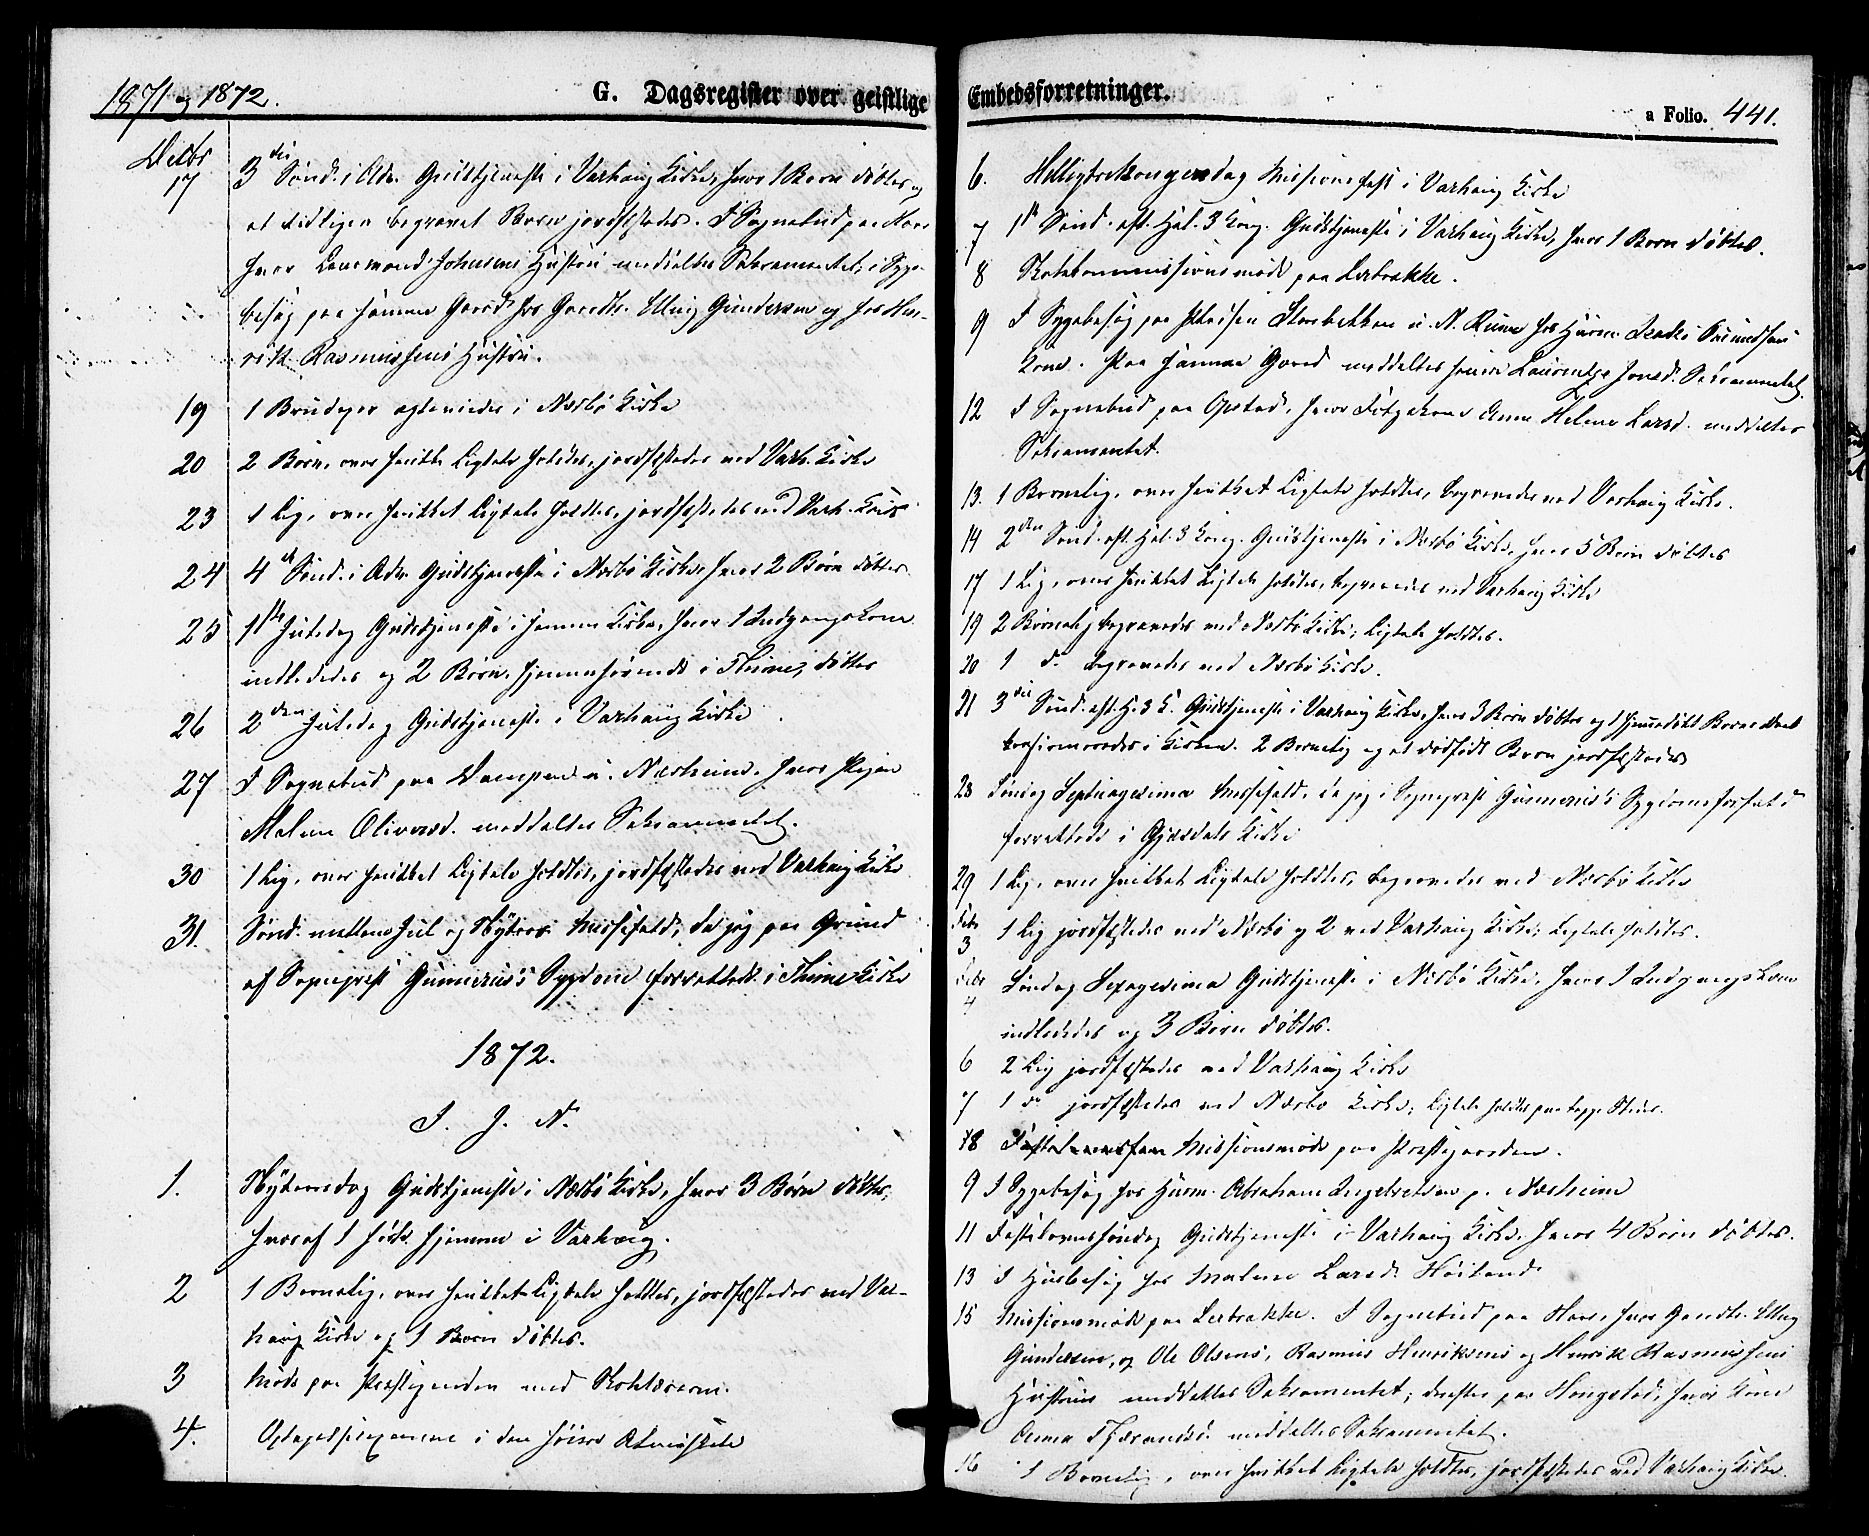 1871 og 1872. G. Dagsregister over geistlige
Decbr
17 3die Sönd. i Adv. Gudstjeneste i Varhaug Kirke, hvor 1 Barn döbtes og
et tidligere begravet Barn jordfæstedes. I Sognebud paa Haar
hvor Johnsens Hustru meddeltes Sakramentet, i Syge-
besög paa samme Gaard hos Gaardbr. Elling Gundersen og hos Hen-
rik Rasmussens Hustru.
19 1 Brudepar ægteviedes i Nærbö Kirke
20 2 Börn, over hvilke Ligtale holdtes, jordfæstedes ved Varh. Kirke
23 1 Lig, over hvilket Ligtale holdtes, jordfæstedes ved Varh. Kirke
24 4de Sönd. i Adv. Gudstjeneste i Nærbö Kirke, hvor 2 Börn döbtes.
25 1ste Juledag Gudstjeneste i samme Kirke, hvor 1 Indgangskone
indlededes og 2 Börn, hjemmehörende i Thime, döbtes
26 2den Juledag Gudstjeneste i Varhaug Kirke
27 I Sognebud paa u. Nærheim, hvor Pigen
Malene Oliversd. meddeltes Sakramentet.
30 1 Lig, over hvilket Ligtale holdtes, jordfæstedes ved Varhaug Kirke
31. Sönd. mellem Jul og Nytaar Messefald, da jeg paa Grund
af Sogneprest Gunnerus's Sygdom forrettede i Thime Kirke
1872.
I. J. N.
1. Nytaarsdag Gudstjeneste i Nærbö Kirke, hvor 3 Börn döbtes,
hvoraf 1 hjemme i Varhaug.
2 1 Barnelig, over hvilket Ligtale holdtes, jordfæstedes ved Var-
haug Kirke og 1 Barn döbtes.
3 Möde paa Præstegaarden med Skolelærerne.
4. Optagelsesexamen i den höiere Almueskole
Embedsforretninger. a Folio. 441.
6. Helligtrekongersdag Missionsfest i Varhaug Kirke
7 1ste Sönd. eft. Hel. 3 Kong. Gudstjeneste i Varhaug Kirke, hvor 1 Barn döbtes.
8 Skolekommissionsmöde paa Lerbrække.
9 I Sygebesög paa Pladsen Storbekken u. N. hos Huusm.
Kone. Paa samme Gaard meddeltes Sakramentet.
12 I Sognebud paa Opstad, hvor Anne Helene Larsd. meddeltes
Sakramentet.
13. 1 Barnelig, over hvilket Ligtale holdtes, begravedes ved Varhaug Kirke.
14 2den Sönd. eft. Hel. 3 Kong. Gudstjeneste i Nærbö Kirke, hvor 5 Börn döbtes
17 1 Lig, over hvilket Ligtale holdtes, begravedes ved Varhaug Kirke
19 2 Börnelig begravedes ved Nærbö Kirke; Ligtale holdtes.
20 1 do begravedes ved Nærbö Kirke.
21 3die Sönd. eft. H. 3 K. Gudstjeneste i Varhaug Kirke, hvor 3 Börn döbtes og 1 hjemmedöbt Barns Daab
konfirmeredes i Kirken. 2 Barnelig og et dödfödt Barn jordfæstedes
28 Söndag Septuagesima Messefald, da jeg i Sognepræst Gunnerus's Sygdomsforfald
forrettede i Gjesdals Kirke
29 1 Lig, over hvilket Ligtale holdtes, begravedes ved Nærbö Kirke
Febr
3 1 Lig jordfæstedes ved Nærbö og 2 ved Varhaug Kirke; Ligtale holdtes.
Febr
4 Söndag Sexagesima Gudstjeneste i Nærbö Kirke, hvor 1 Indgangskone
indlededes og 3 Börn döbtes.
6 2 Lig jordfæstedes ved Varhaug Kirke
7 1 do jordfæstedes ved Nærbö Kirke; Ligtale holdtes paa begge Steder.
8 Missionsmöde paa Præstegaarden.
9 I Sygebesög hos Huusm. Abraham Ingebretsen p. Nærheim
11 Fastelavnssöndag Gudstjeneste i Varhaug Kirke, hvor 4 Börn döbtes.
13 I Husbesög hos Malene Larsd. Höiland
15 Missionsmöde paa Lerbrække. I Sognebud paa Haar, hvor Gaardbr. Elling
Gundersen, og Ole Olsens, Rasmus Henriksens og Henrik Rasmussens
Hustruer meddeltes Sakramentet; derefter paa Hongstad, hvor Kone
Anna meddeltes Sakramentet.
16 1 Barnelig, over hvilket Ligtale holdtes, jordfæstedes ved Varhaug Kirke.